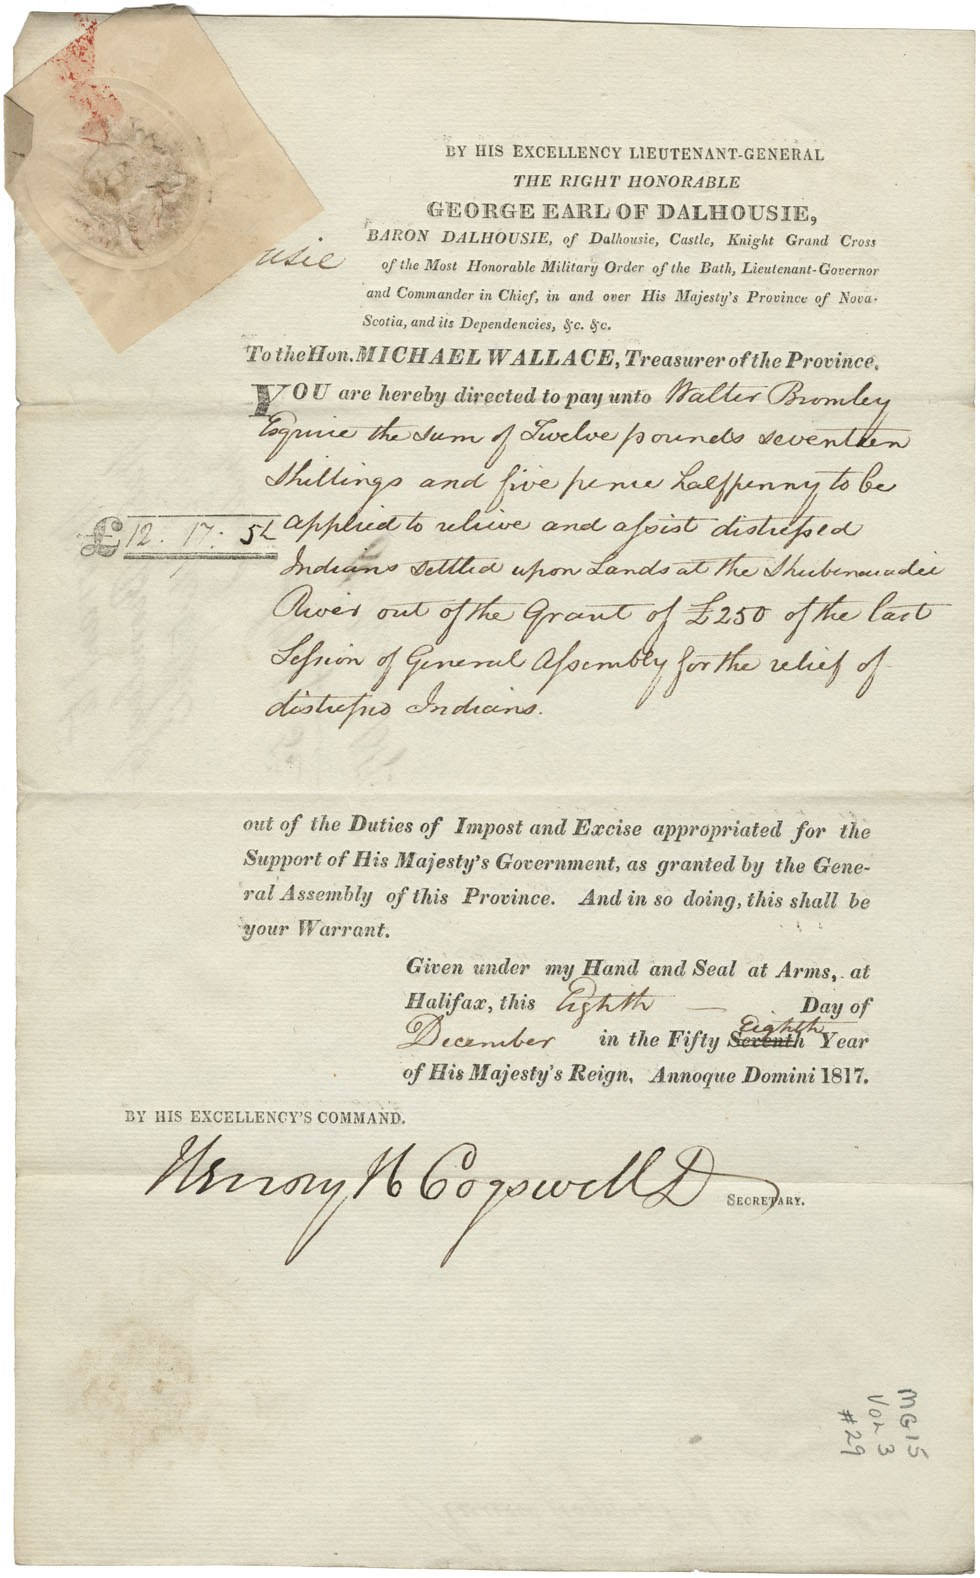 BY HIS EXCELLENCY LIEUTENANT-GENERAL
THE RIGHT HONORABLE
GEORGE EARL OF DALHOUSIE,
usie
BARON DALHOUSIE, of Dalhousie, Castle, Knight Grand Cross
of the Most Honorable Military Order of the Bath, Lieutenant-Governor
and Commander in Chief, in and over His Majesty's Province of Nova-
Scotia, and its Dependencies, &c. &c.
To the Hon. MICHAEL WALLACE, Treasurer of the Province.
YOU are hereby directed to pay unto Walter Bromley
Esquire the sum of Twelve pounds seventeen
Shillings and five pence halfpenny to be
£12. 17: 5½ applied to relieve and assist distressed
Indians settled upon Lands at the Shubenacadie
River out of the Grant of £250 of the last
Session of General Assembly for the relief of
distressd Indians.
out of the Duties of Impost and Excise appropriated for the
Support of His Majesty's Government, as granted by the Gene-
ral Assembly of this Province. And in so doing, this shall be
your Warrant.
Given under my Hand and Seal at Arms, at
Halifax, this Eighth — Day of
December in the Fifty Seventh Eighth Year
of His Majesty's Reign, Annoque Domini 1817.
BY HIS EXCELLENCY'S COMMAND.
Henry H Cogswell D SECRETARY.
MG 15
Vol 3
#29